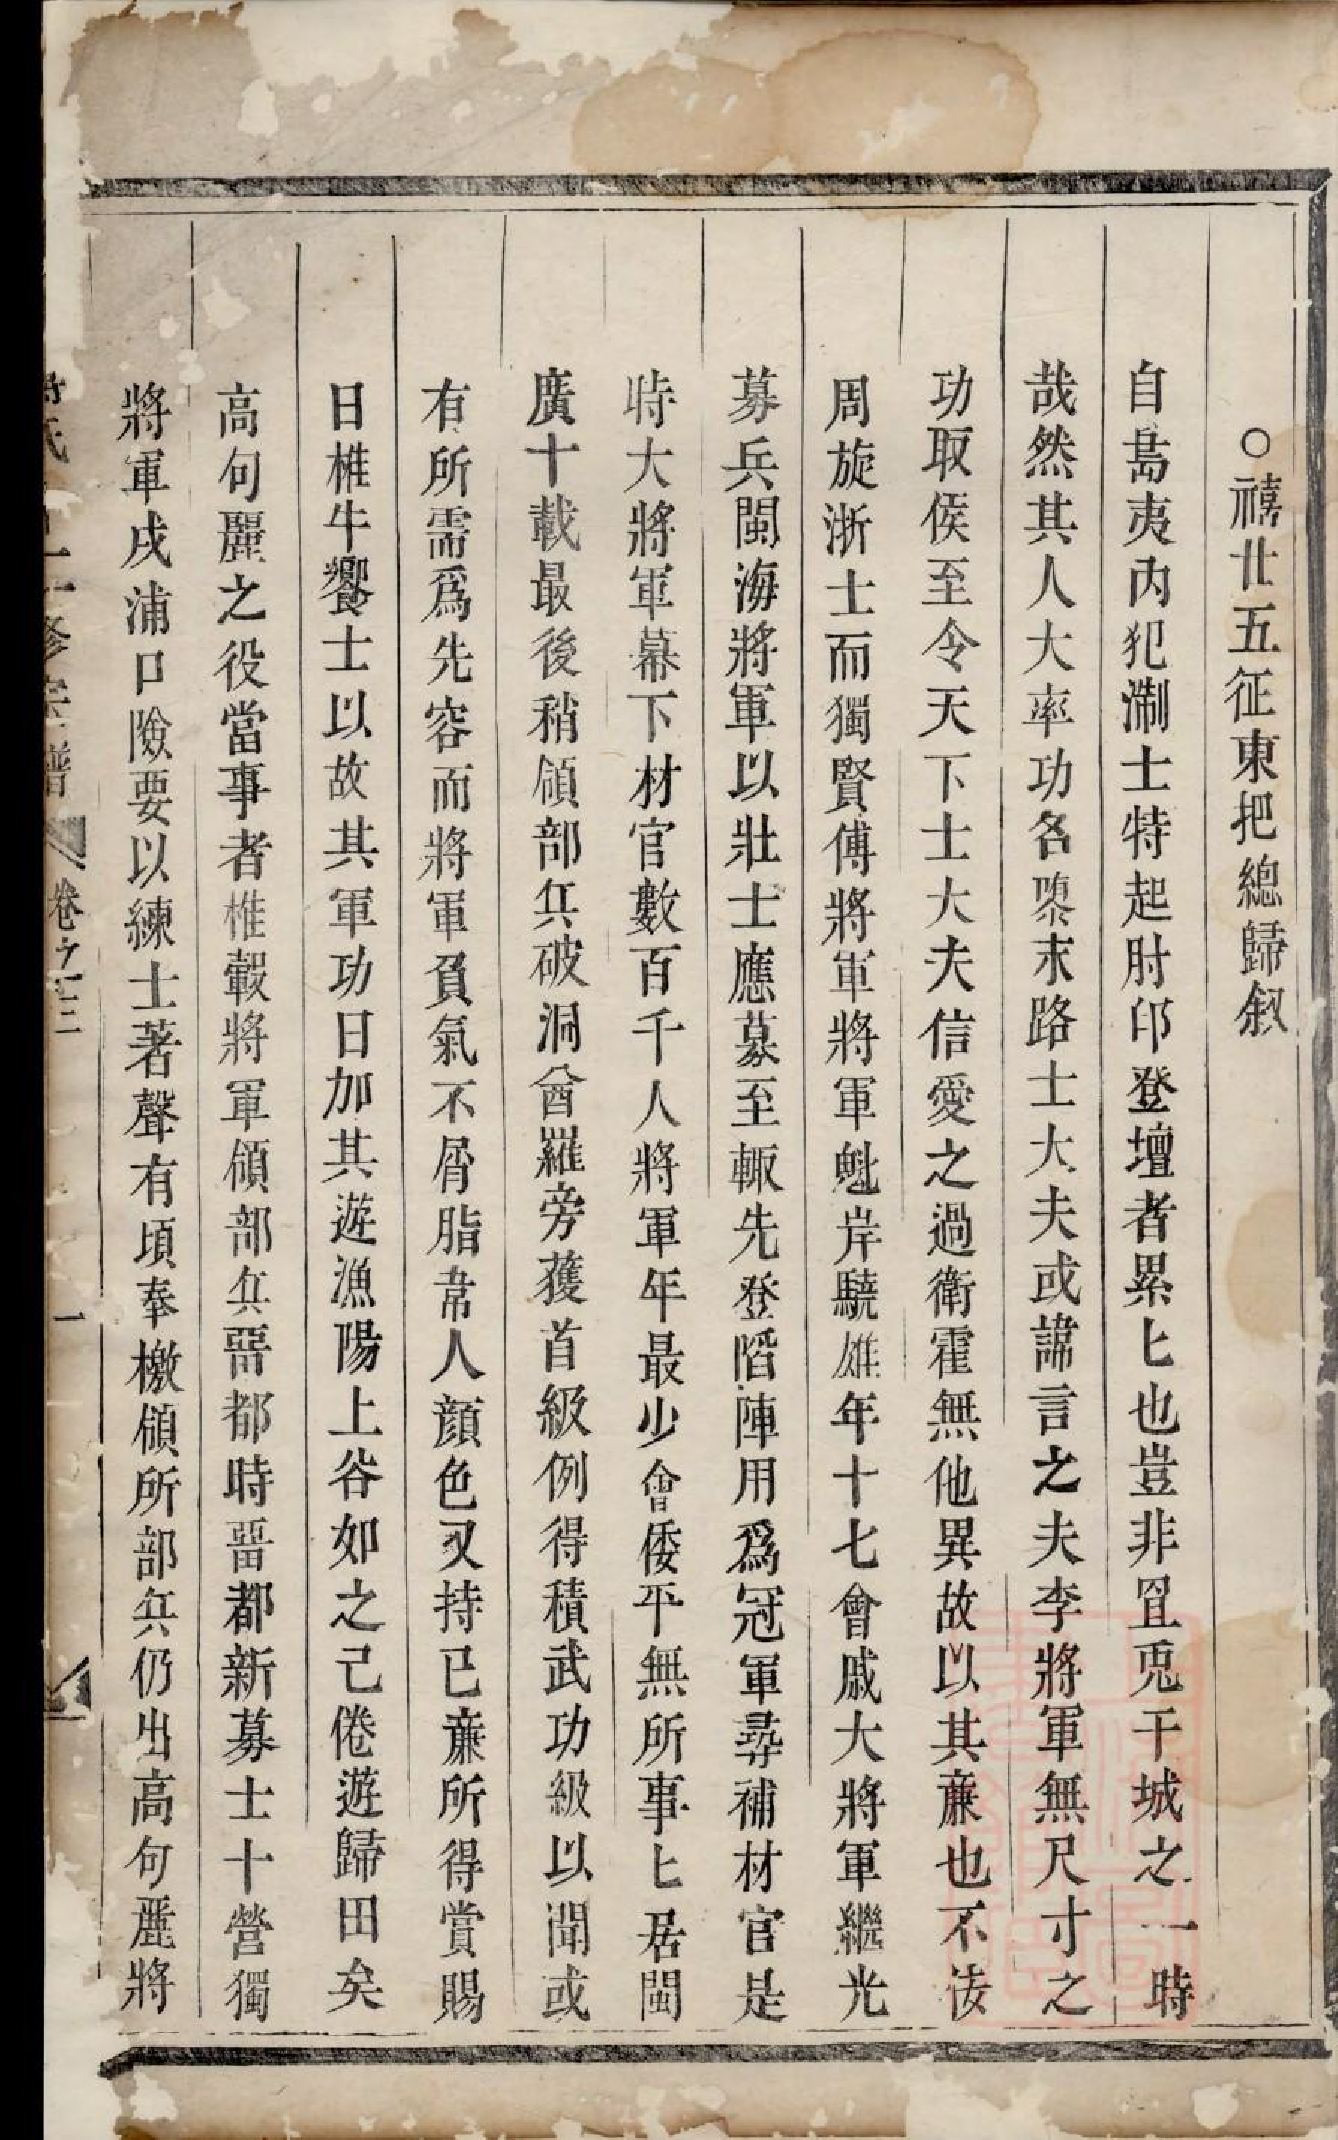 ○禧廿五征東把總歸叙
自島夷內犯淛士特起肘印登壇者累匕也豈非罝兎干城之一時
哉然其人大率功名隳末路士大夫或諦言之夫李將軍無尺寸之
功取侯至令天下士大夫信愛之過衛霍無他異故以其亷也不佞
周旋浙士而獨賢傅將軍將軍魁岸驍雄年十七會戚大將軍繼光
募兵閩海將軍以壯士應募至輙先登陷陣用爲冠軍尋補材官是
時大將軍幕下材官數百千人將軍年最少會倭平無所事匕居閩
廣十載最後稍領部兵破洞酋羅旁獲首級例得積武功級以聞或
有所需爲先容而將軍負氣不屑脂韋人顔色又持已亷所得賞賜
日椎牛饗士以故其軍功日加其遊漁陽上谷如之己倦遊歸田矣
高句麗之役當事者椎轂將軍領部兵畱都時畱都新募士十營獨
將軍戍浦口險要以練士著聲有頃奉檄領所部兵仍出高句麗將
氏 修宗譜 卷之三 一